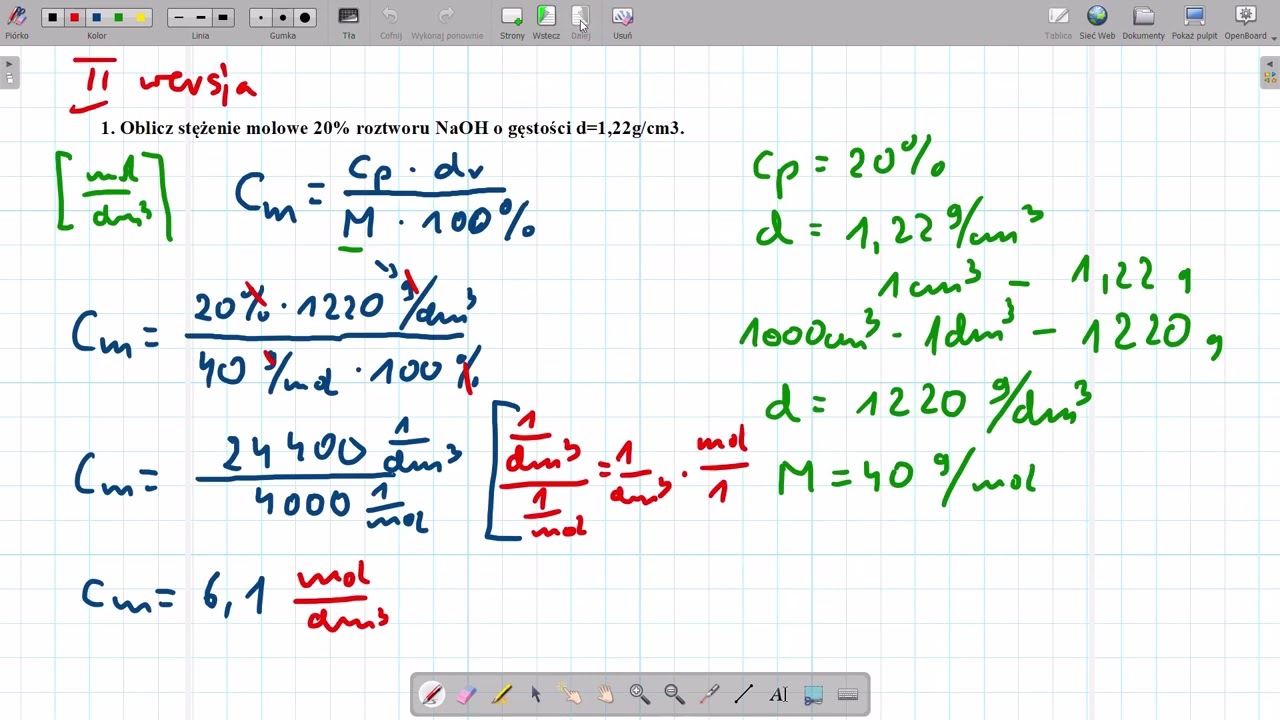 Piórko Kolor Linia Gumka Tła Cofnij Wykonaj ponownie Strony Wstecz Dalej Usuń Tablica Sieć Web Dokumenty Pokaż pulpit OpenBoard
II wersja
1. Oblicz stężenie molowe 20% roztworu NaOH o gęstości d=1,22g/cm3.
[mol/dm³]
Cm = cp · dr / M · 100%
Cm = 20% · 1220 g/dm³ / 40 g/mol · 100%
Cm = 24400 1/dm³ / 4000 1/mol
[1/dm³ / 1/mol = 1/dm³ · mol/1
Cm = 6,1 mol/dm³
Cp = 20%
d = 1,22 g/cm³
1cm³ – 1,22 g
1000cm³ - 1dm³ – 1220 g
d = 1220 g/dm³
M = 40 g/mol
AI